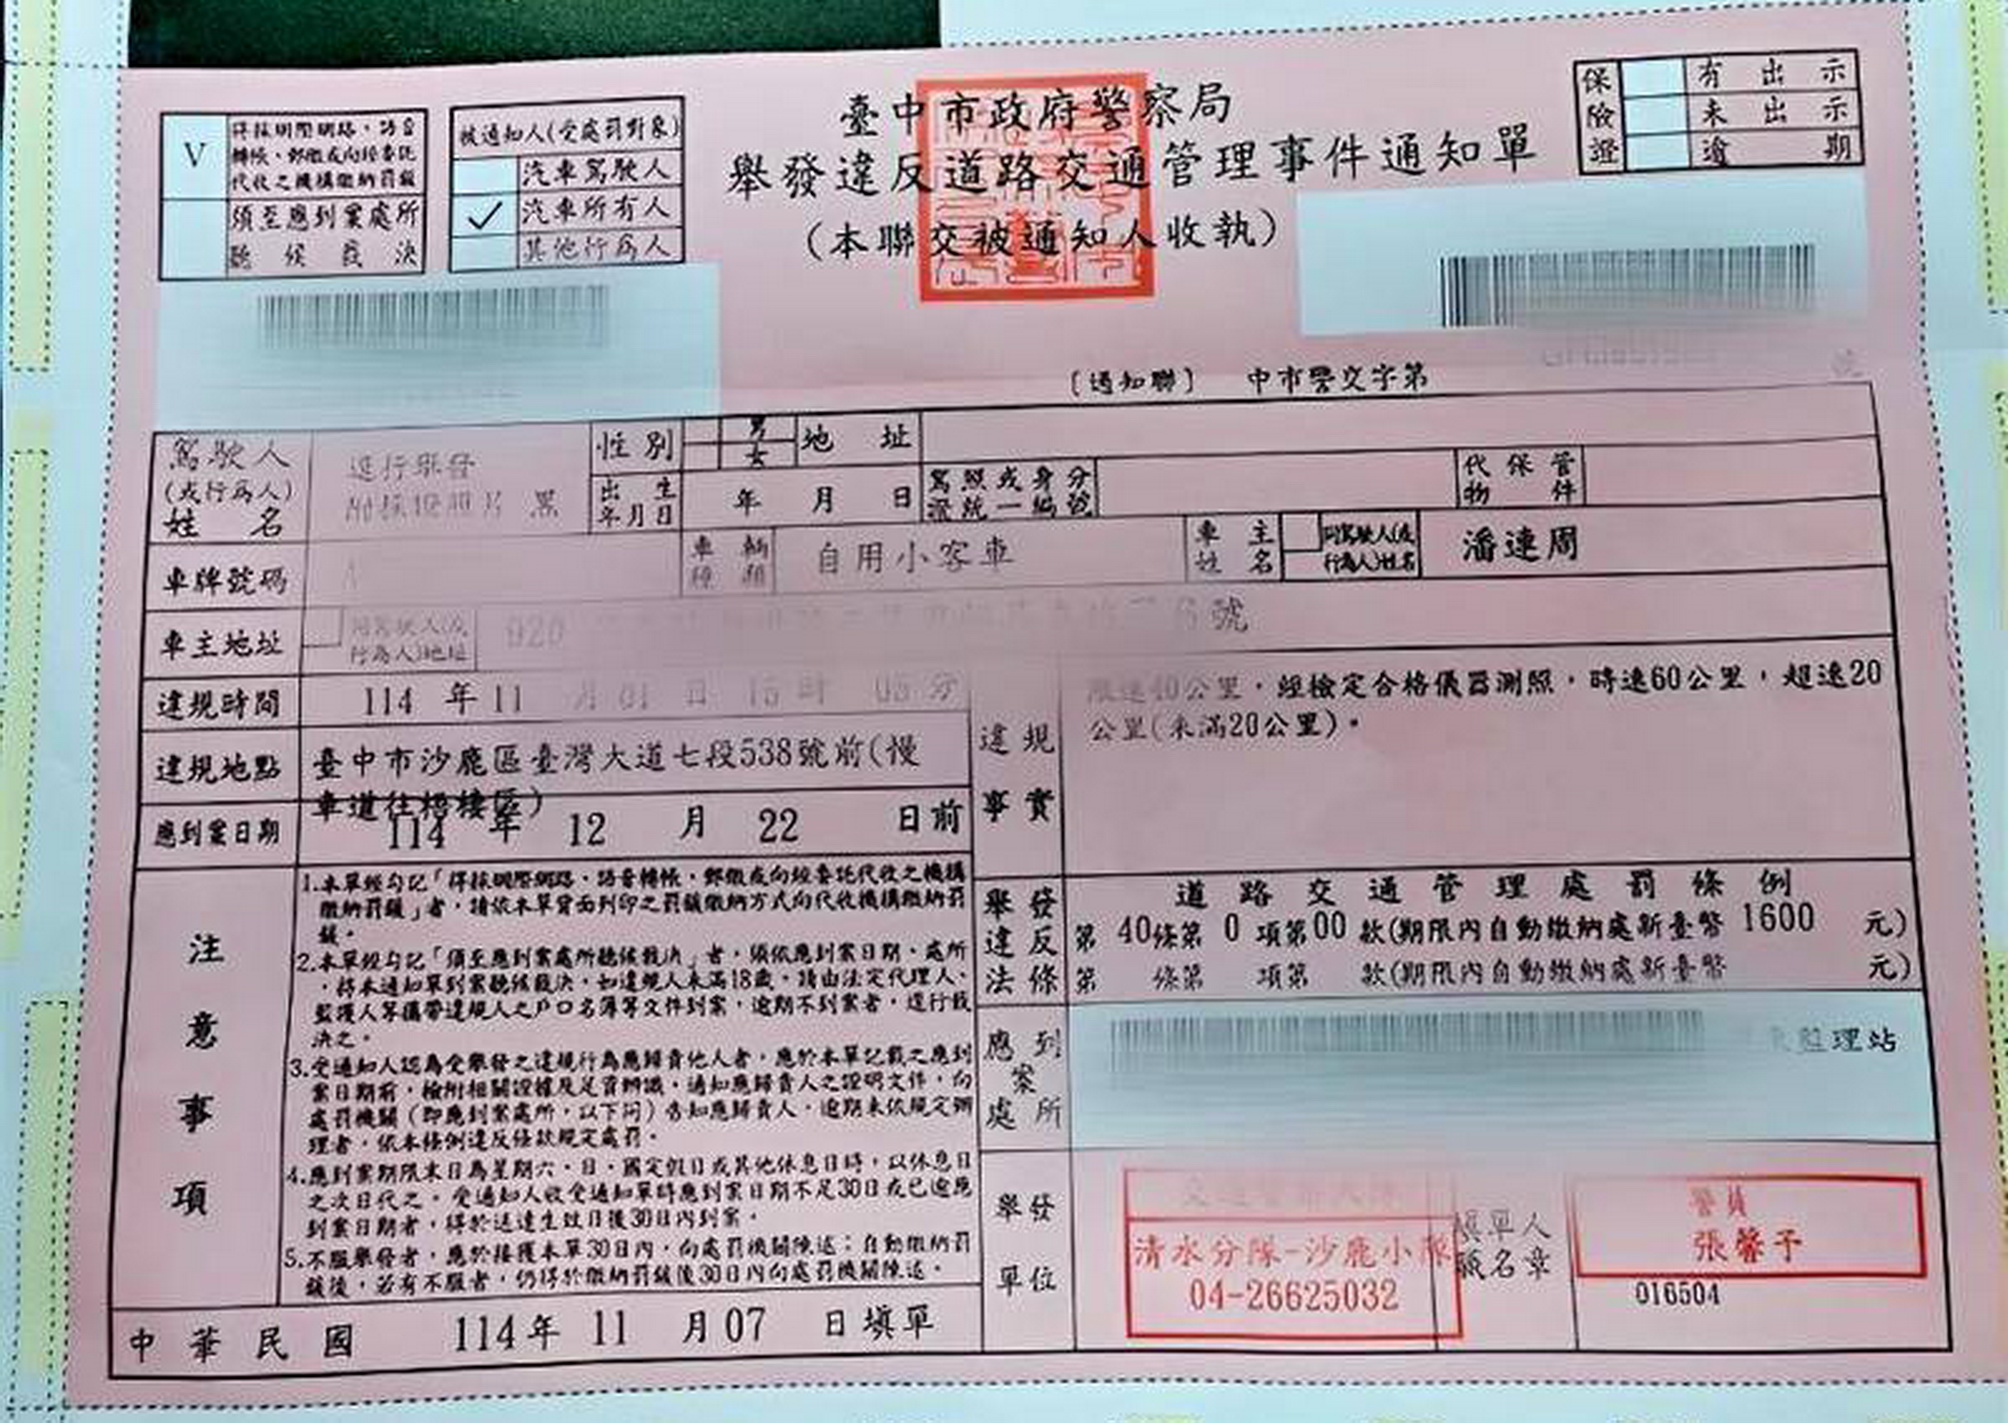 臺中市政府警察局
舉發違反道路交通管理事件通知單
(本聯交被通知人收執)
V 得採網際網路、語音
轉帳、郵繳或向經委託
代收之機構繳納罰鍰
須至應到案處所
聽候裁決
被通知人(受處罰對象)
汽車駕駛人
✓ 汽車所有人
其他行為人
保險證 有出示
未出示
逾期
〔通知聯〕 中市警交字第
駕駛人
(或行為人)
姓名
逕行舉發
性別 男
女
地址
出生
年月日
年 月 日
駕照或身分
證統一編號
代保管
物件
車牌號碼
車輛
種類
自用小客車
車主
姓名
同駕駛人(或
行為人)姓名
潘連周
車主地址
同駕駛人(或
行為人)地址
920 號
違規時間 114 年 11 月 01 日 15 時 05 分
違規地點 臺中市沙鹿區臺灣大道七段538號前(慢
車道往梧棲區)
應到案日期 114 年 12 月 22 日前
違規事實
限速40公里,經檢定合格儀器測照,時速60公里,超速20
公里(未滿20公里)。
注意事項
1.本單經勾記「得採網際網路、語音轉帳、郵繳或向經委託代收之機構
繳納罰鍰」者,請依本單背面列印之罰鍰繳納方式向代收機構繳納罰
鍰。
2.本單經勾記「須至應到案處所聽候裁決」者,須依應到案日期、處所
,將本通知單到案聽候裁決,如違規人未滿18歲,請由法定代理人、
監護人等攜帶違規人之戶口名簿等文件到案,逾期不到案者,逕行裁
決之。
3.受通知人認為受舉發之違規行為應歸責他人者,應於本單記載之應到
案日期前,檢附相關證據及足資辨識、通知應歸責人之證明文件,向
處罰機關(即應到案處所,以下同)告知應歸責人,逾期未依規定辦
理者,依本條例違反條款規定處罰。
4.應到案期限末日為星期六、日、國定假日或其他休息日時,以休息日
之次日代之。受通知人收受通知單時應到案日期不足30日或已逾應
到案日期者,得於送達生效日後30日內到案。
5.不服舉發者,應於接獲本單30日內,向處罰機關陳述;自動繳納罰
鍰後,若有不服者,仍得於繳納罰鍰後30日內向處罰機關陳述。
舉發
違反
法條
道路交通管理處罰條例
第 40條第 0 項第00 款(期限內自動繳納處新臺幣 1600 元)
第 條第 項第 款(期限內自動繳納處新臺幣 元)
應到案處所
監理站
舉發
單位
清水分隊-沙鹿小隊
04-26625032
填單人
職名章
警員
張馨予
016504
中華民國 114年 11 月07 日填單